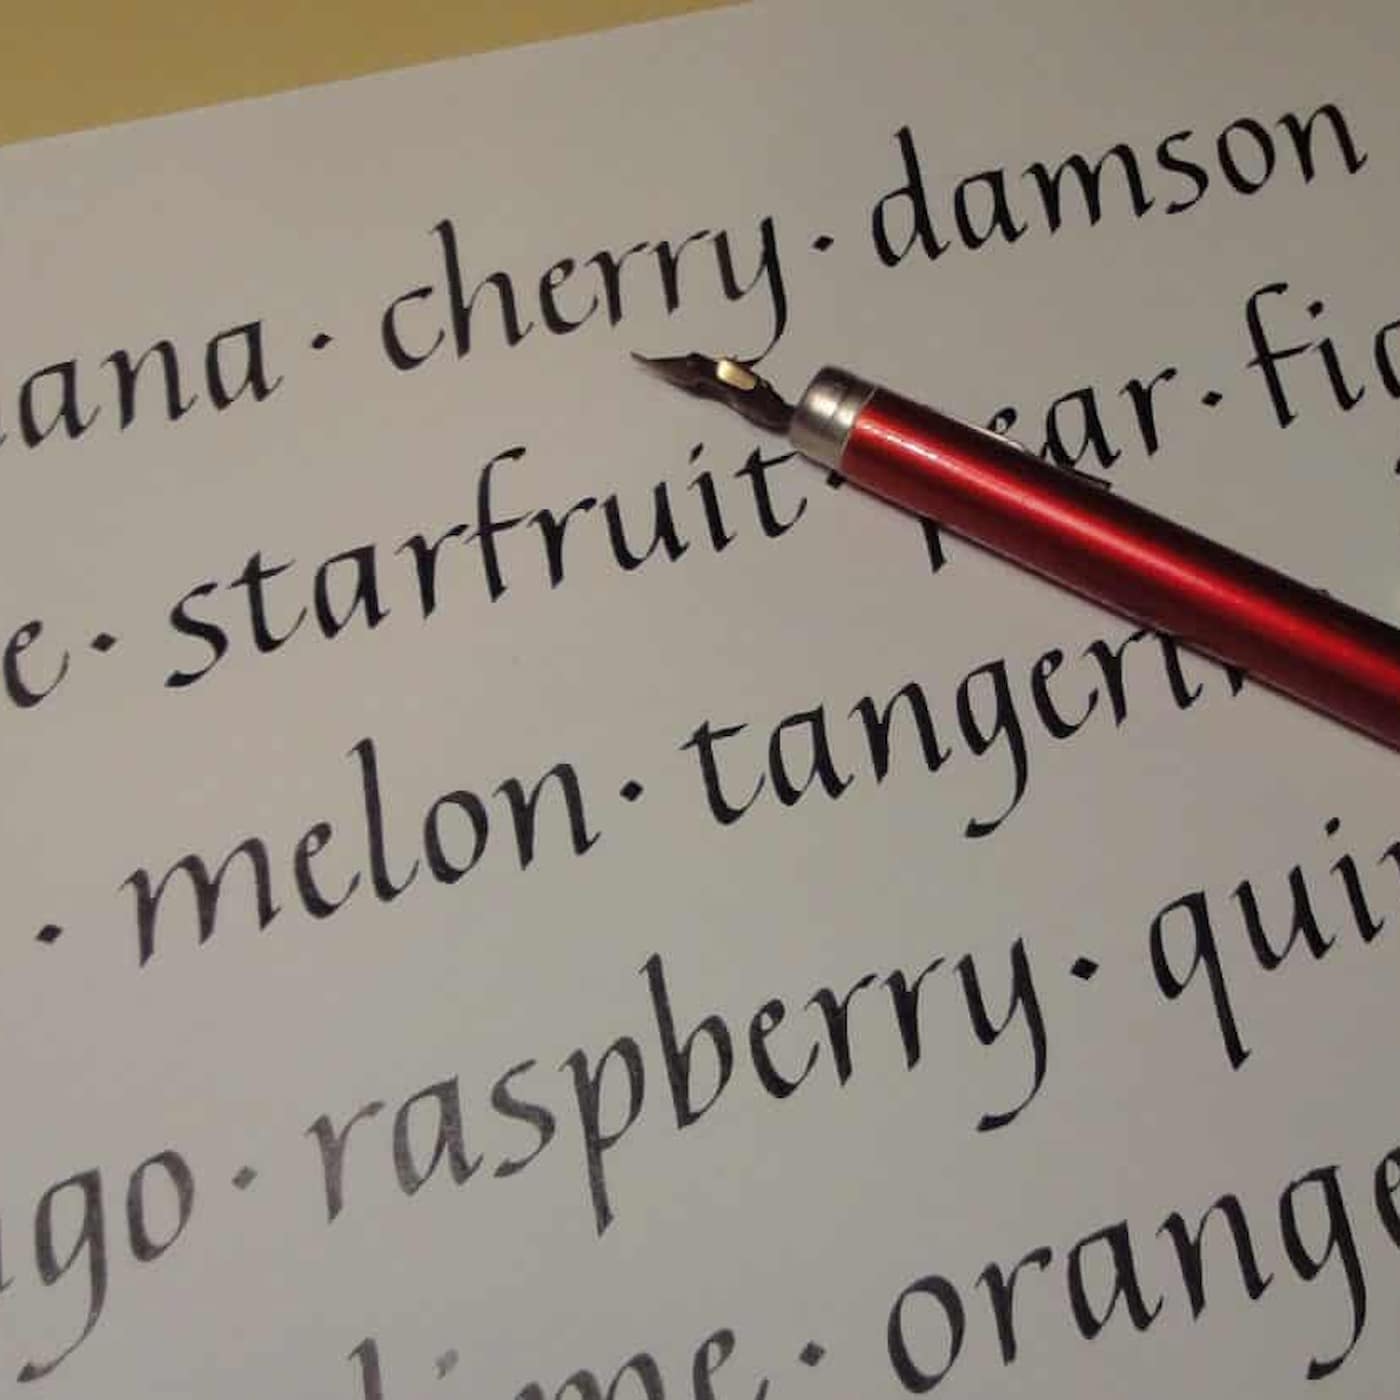 ana · cherry · damson
e · starfruit · pear · fig
· melon · tangerin
go · raspberry · quin
lime · orange